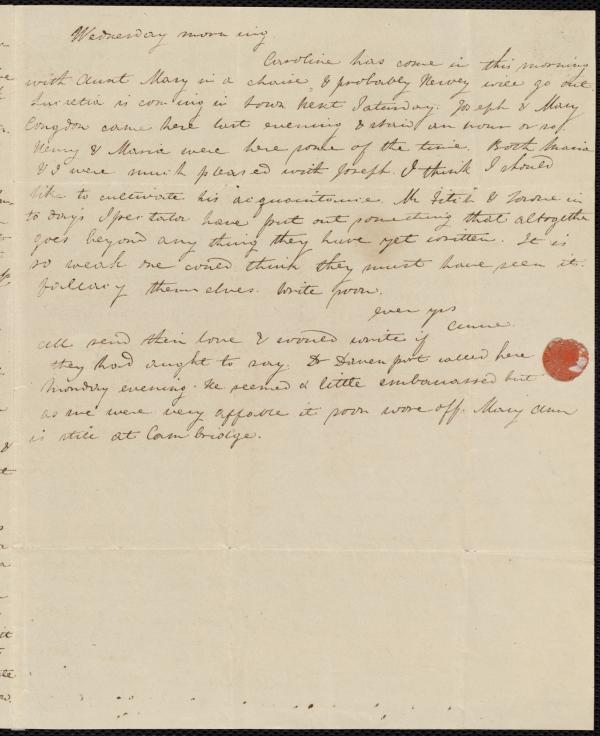 Wednesday morning.
Caroline has come in this morning
with Aunt Mary in a chaise & probably Hervey will go out.
Lucretia is coming in town next Saturday. Joseph & Mary
Congdon came here last evening & staid an hour or so.
Henry & Maria were here some of the time. Both Maria
& I were much pleased with Joseph. I think I should
like to cultivate his acquaintance. Mr Fitch & in
to day's Spectator have put out something that altogether
goes beyond any thing they have yet written. It is
so weak one could think they must have seen its
themselves. Write soon.
ever yrs
Anne.
all send their love & would write if
they had aught to say. Dr Davenport called here
Monday evening. He seemed a little embarrassed but
as we were very affable it soon wore off. Mary Ann
is still at Cambridge.
&
it